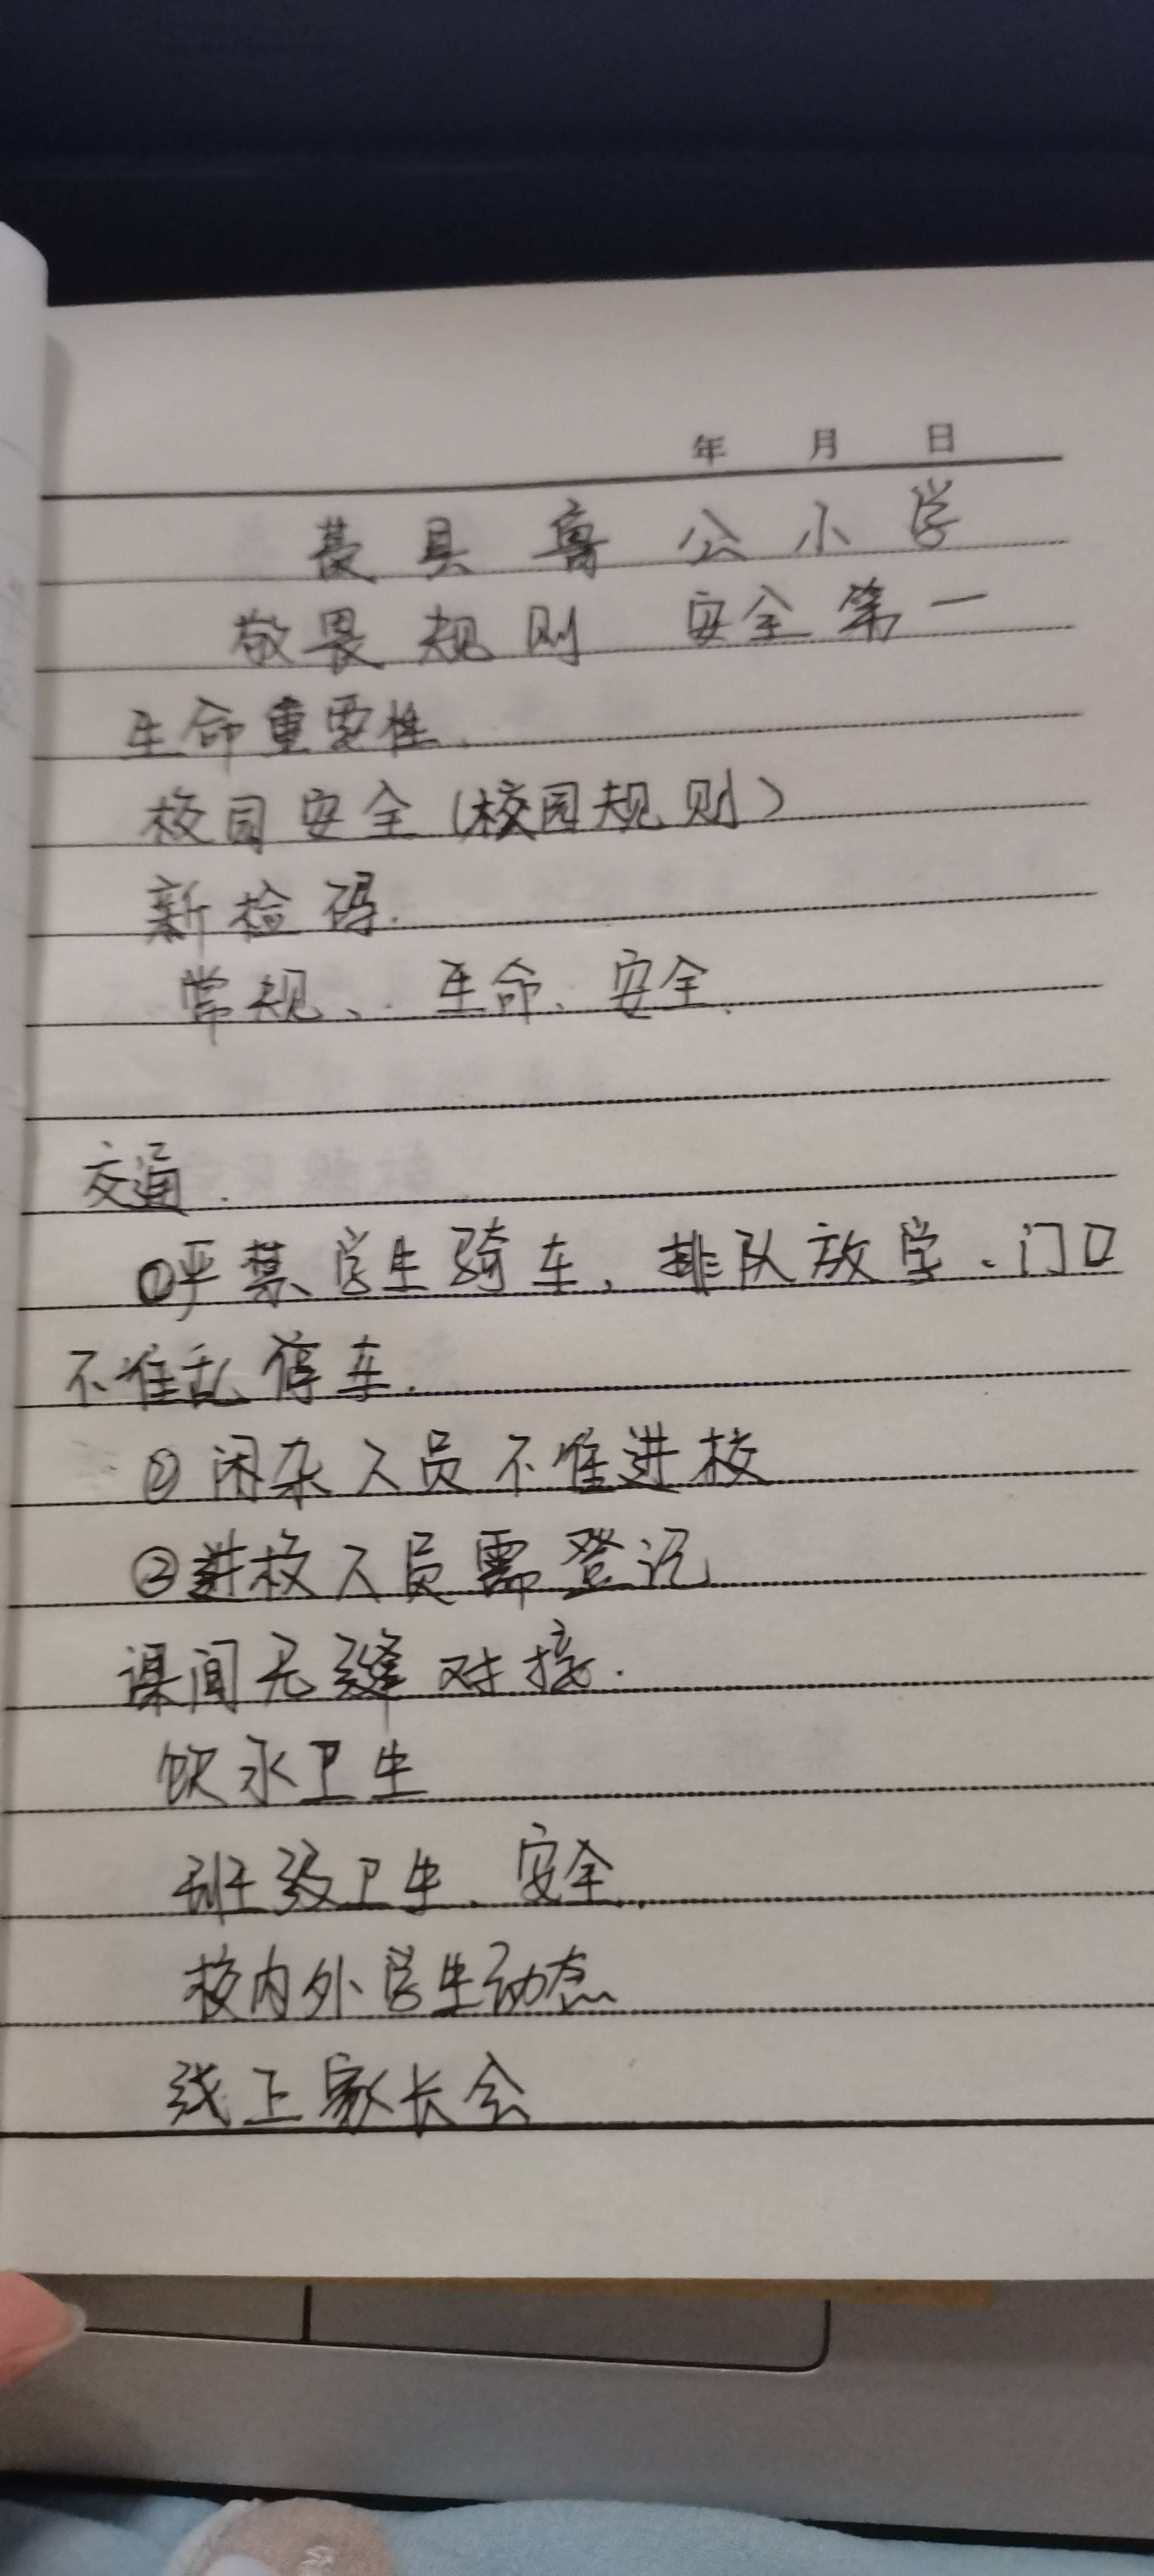 年 月 日
县鲁公小学
敬畏规则 安全第一
生命重要性.
校园安全(校园规则)
新检码.
常规、. 生命、安全.
交通.
①严禁学生骑车、排队放学、门口
不准乱停车.
②闲杂人员不准进校
③进校人员需登记
课间无缝对接.
饮水卫生
班级卫生、安全.
校内外学生动态
线上家长会